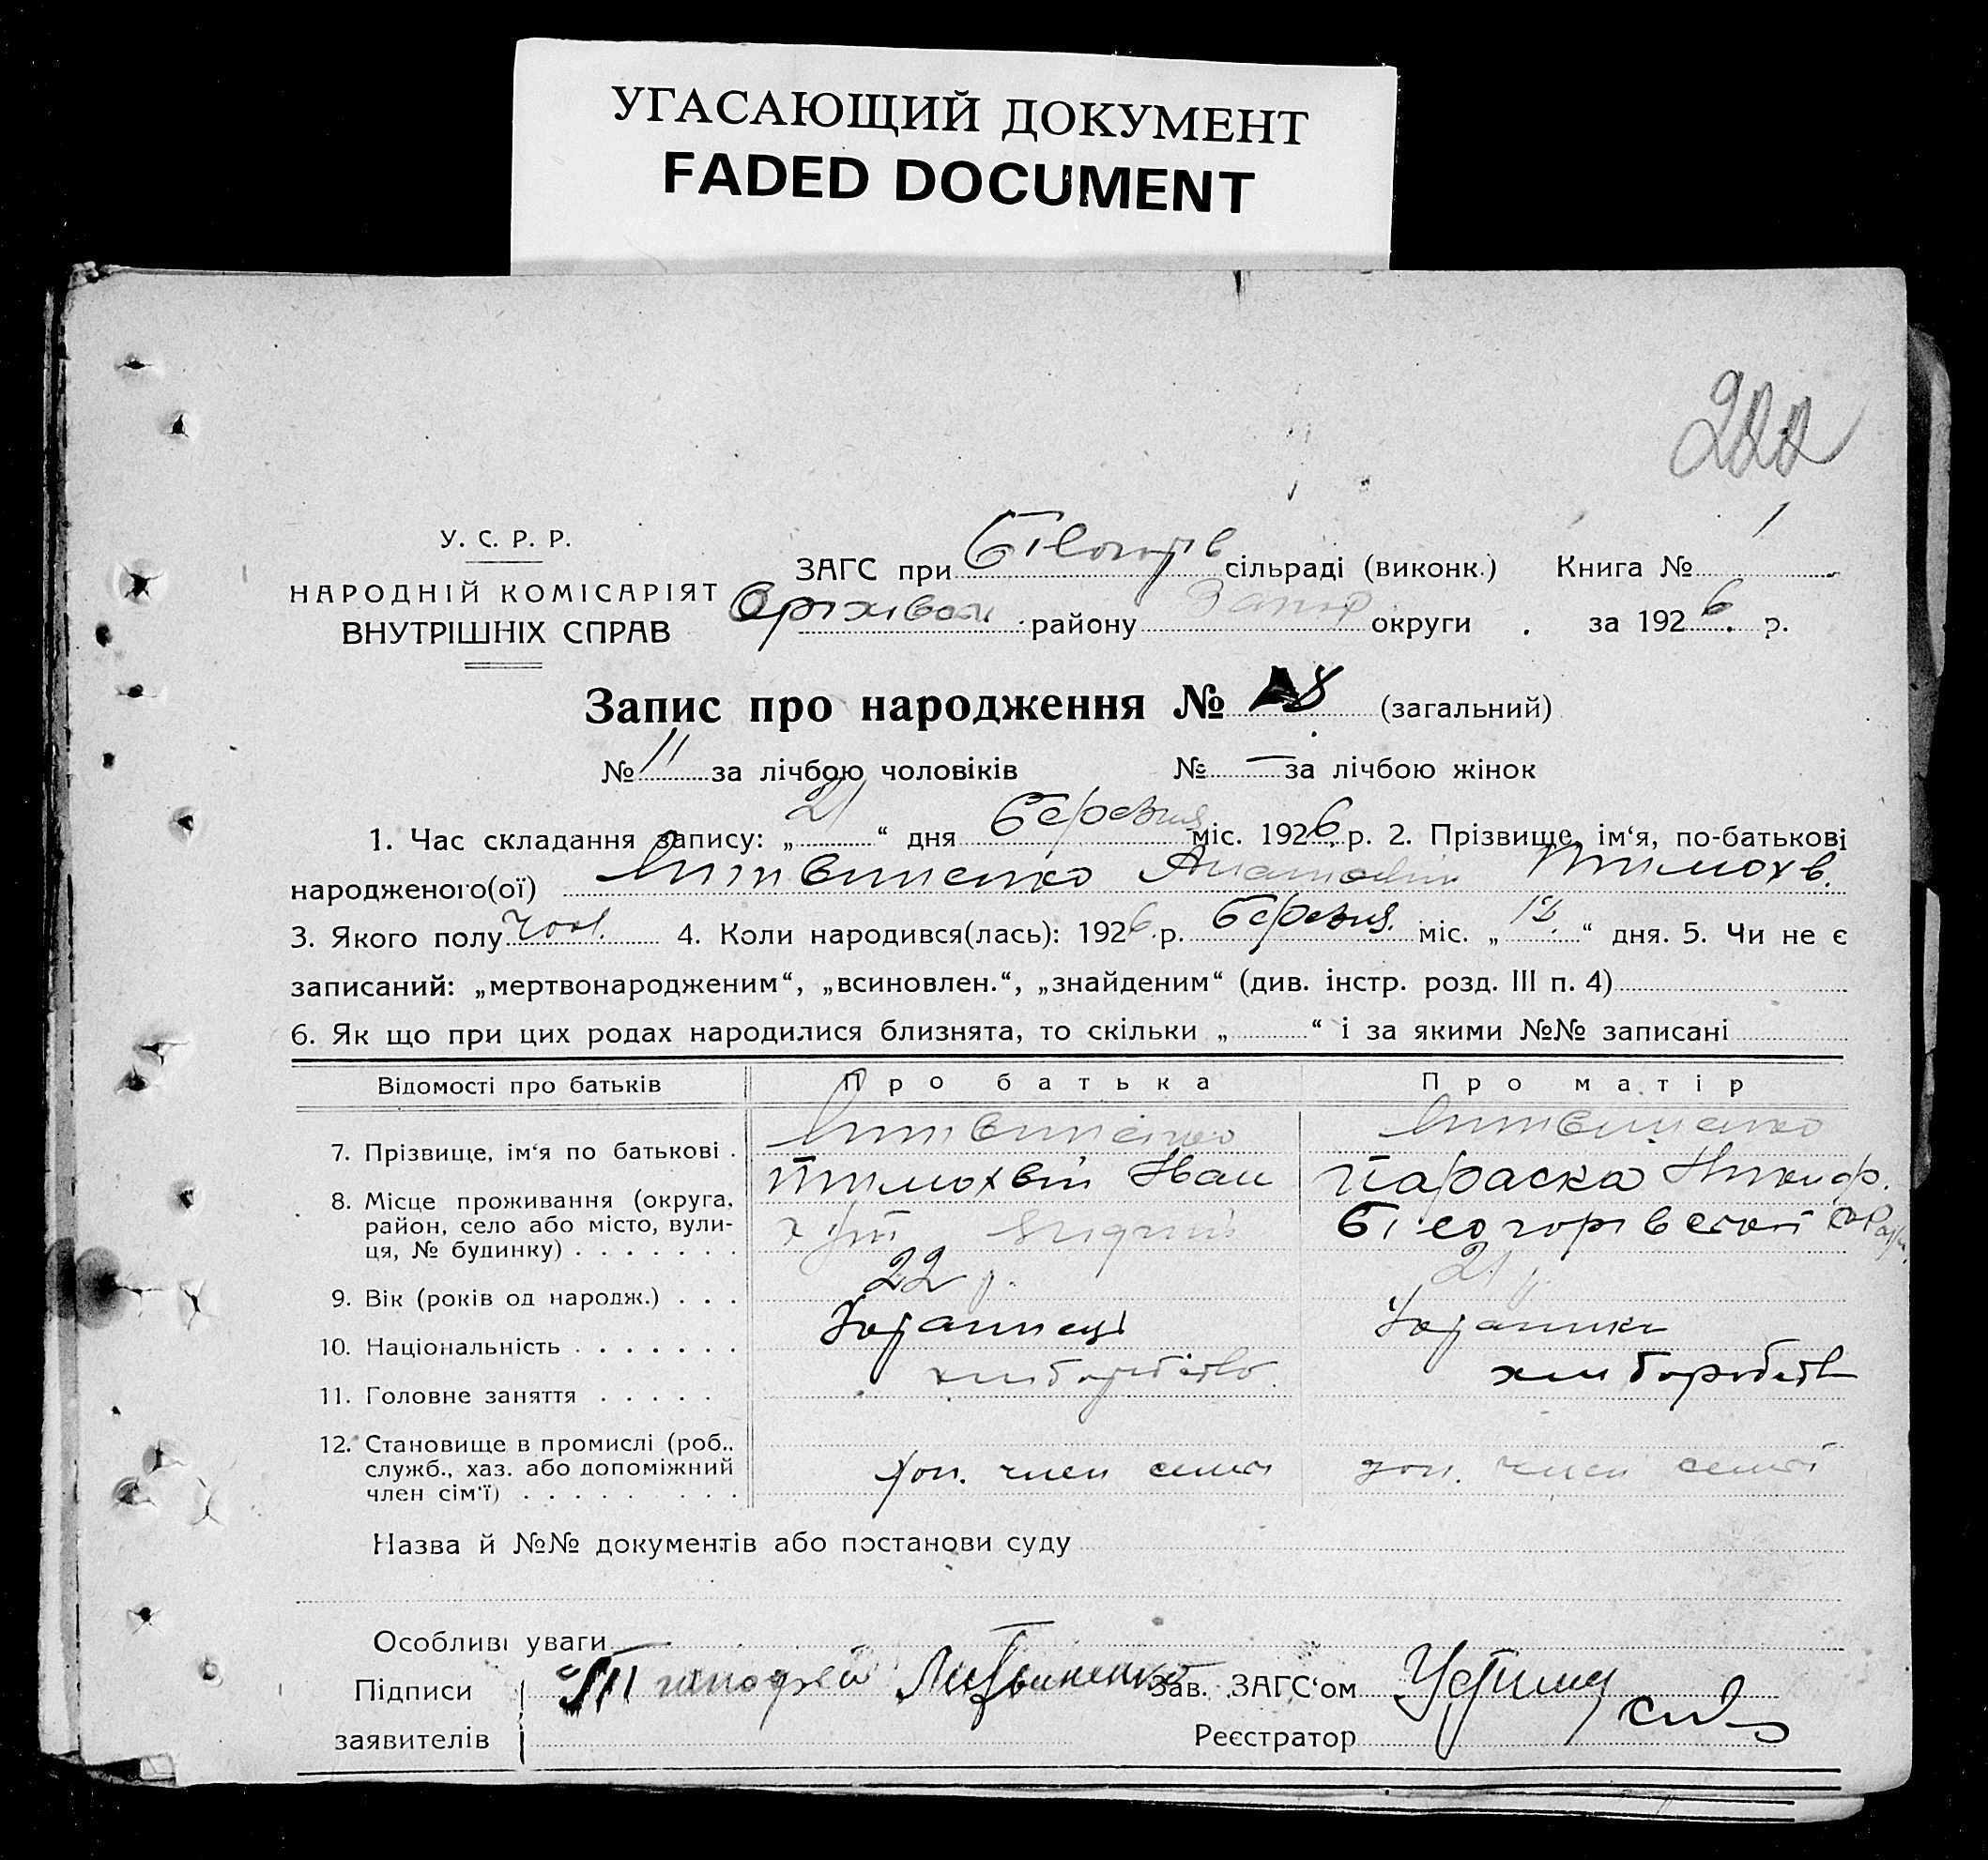 УГАСАЮЩИЙ ДОКУМЕНТ
FADED DOCUMENT
222
У. С. Р. Р.
НАРОДНІЙ КОМІСАРІЯТ
ВНУТРІШНІХ СПРАВ
ЗАГС при Білогорів сільраді (виконк.) Книга № 1
Оріхівськ району Запор округи . за 1926 р.
Запис про народження № 18 (загальний)
№ 11 за лічбою чоловіків № — за лічбою жінок
1. Час складання запису: „ 21 “ дня березня міс. 1926 р. 2. Прізвище, ім‘я, по-батькові
народженого(ої) Литвиненко Анатолій Тимохв.
3. Якого полу чол. 4. Коли народився(лась): 1926 р. березня міс. „ “ дня. 5. Чи не є
записаний: „мертвонародженим“, „всиновлен.“, „знайденим“ (див. інстр. розд. III п. 4)
6. Як що при цих родах народилися близнята, то скільки „ “ і за якими №№ записані
Відомості про батьків Про батька Про матір
7. Прізвище, ім‘я по батькові . Литвиненко Литвиненко
Тимохвій Іван Параска Никиф.
8. Місце проживання (округа,
район, село або місто, вули-
ця, № будинку) . . . . . . . Білогорівської
9. Вік (років од народж.) . . . 22 р. 21 р.
10. Національність . . . . . . . Українець Українка
11. Головне заняття . . . . . хліборобство хліборобств
12. Становище в промислі (роб..
служб., хаз. або допоміжний
член сім‘ї) . . . . . . . . доп. член семьї доп. член семьї
Назва й №№ документів або постанови суду
Особливі уваги —
Підписи Тимофей Литвиненко Зав. ЗАГС‘ом
заявителів Реєстратор